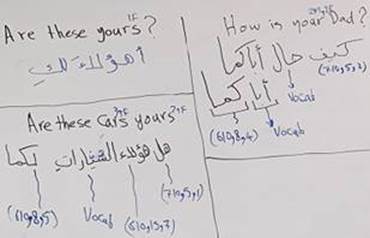 Are these yours 1F ?
أهؤلاء لكِ
How is your 2M,F Dad?
كيف حال أباكما
(710,5,2)
Vocab
أبا كما
(610,8,4)
Vocab
Are these cars yours 2+F
هل هؤلاء السَّيَّاراتِ لكما
(710,5,1)
(610,8,5)
Vocab
(610,13,7)